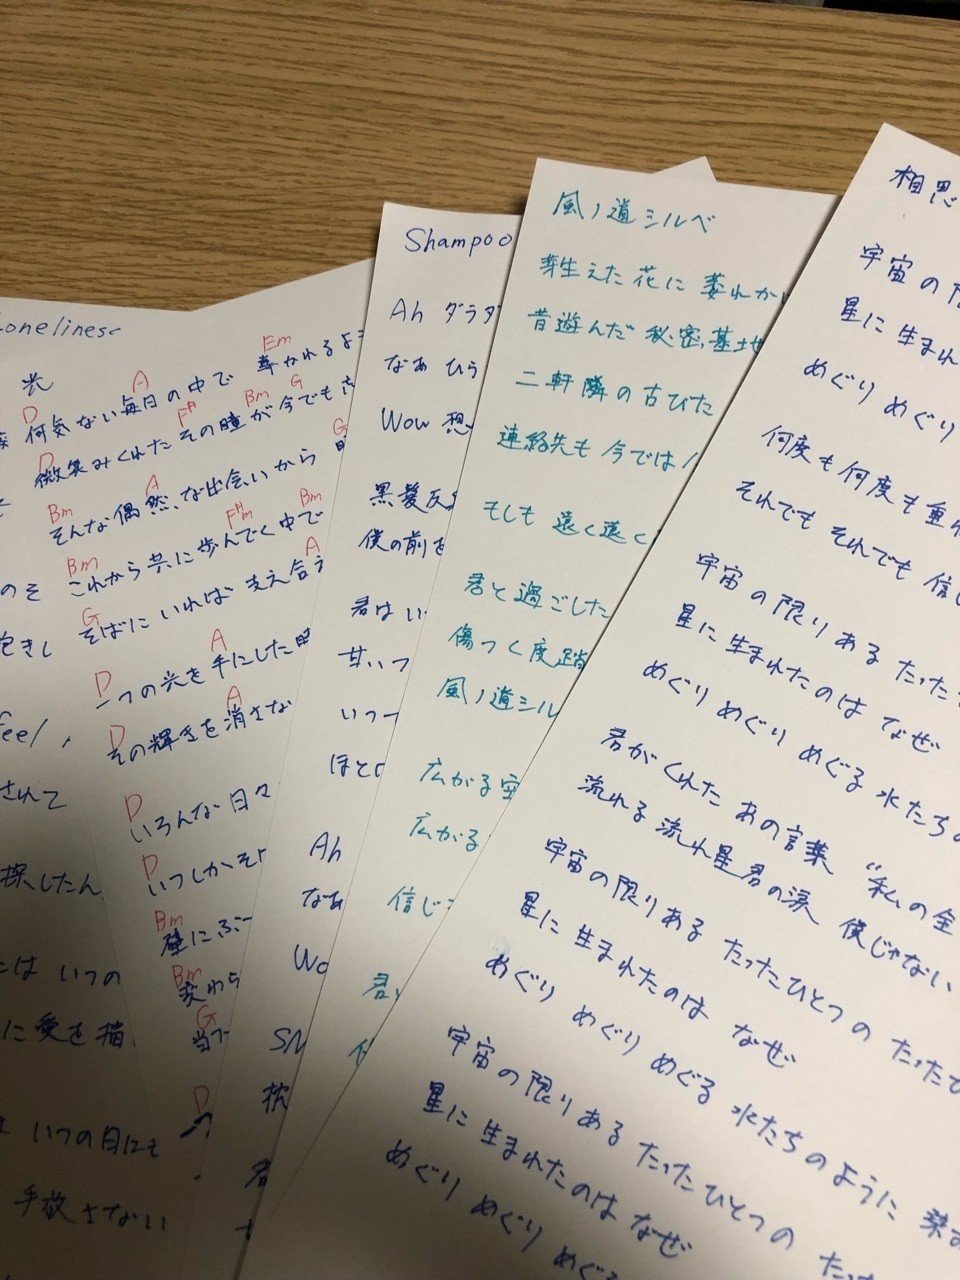 Loneliness
のそ
抱きし
feel,
されて
探したん
には いつの
に愛を描
は いつの日にも
手放さない
光
D A Em
何気ない毎日の中で 導かれるよ
D F# Bm G
微笑みくれたその瞳が今でも
Bm A G
そんな偶然な出会いから
Bm F#m Bm
これから共に歩んでく中で
G A
そばにいれば支え合え
D A
一つの光を手にした時
D A
その輝きを消さな
D
いろんな日々
D
いつしかそ
Bm
壁にぶつ
Bm
変わら
G
当て
D
Shampoo
Ah ダラダ
なあ ひら
Wow 想
黒髪反
僕の前を
君は い
甘いつ
いつ
ほと
Ah
なあ
Wo
SH
枕
君
風ノ道シルベ
芽生えた花に 萎れか
昔遊んだ 秘密基地
二軒隣の古びた
連絡先も 今では
もしも 遠く遠く
君と過ごした
傷つく度踏
風ノ道シル
広がる空
広がる
信じ
君
相思
宇宙の限
星に生まれ
めぐり めぐり
何度も何度も重ね
それでも それでも 信じ
宇宙の限りある たった
星に 生まれたのは なぜ
めぐり めぐり めぐる 水たちの
君がくれた あの言葉 “私の全
流れる 流れ星 君の涙 僕じゃない
宇宙の限りある たったひとつの たった
星に 生まれたのは なぜ
めぐり めぐり めぐる 水たちのように 染ま
宇宙の限りある たったひとつの たった
星に 生まれたのは なぜ
めぐり めぐり めぐ